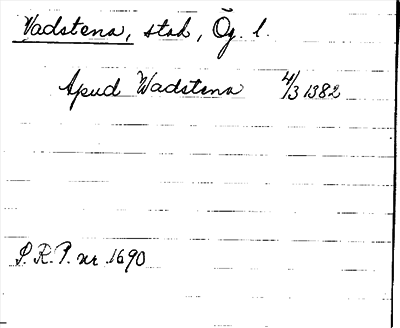 Vadstena, stad, Ög. l.
Apud Wadstena 4/3 1382
S.R.P. nr 1690